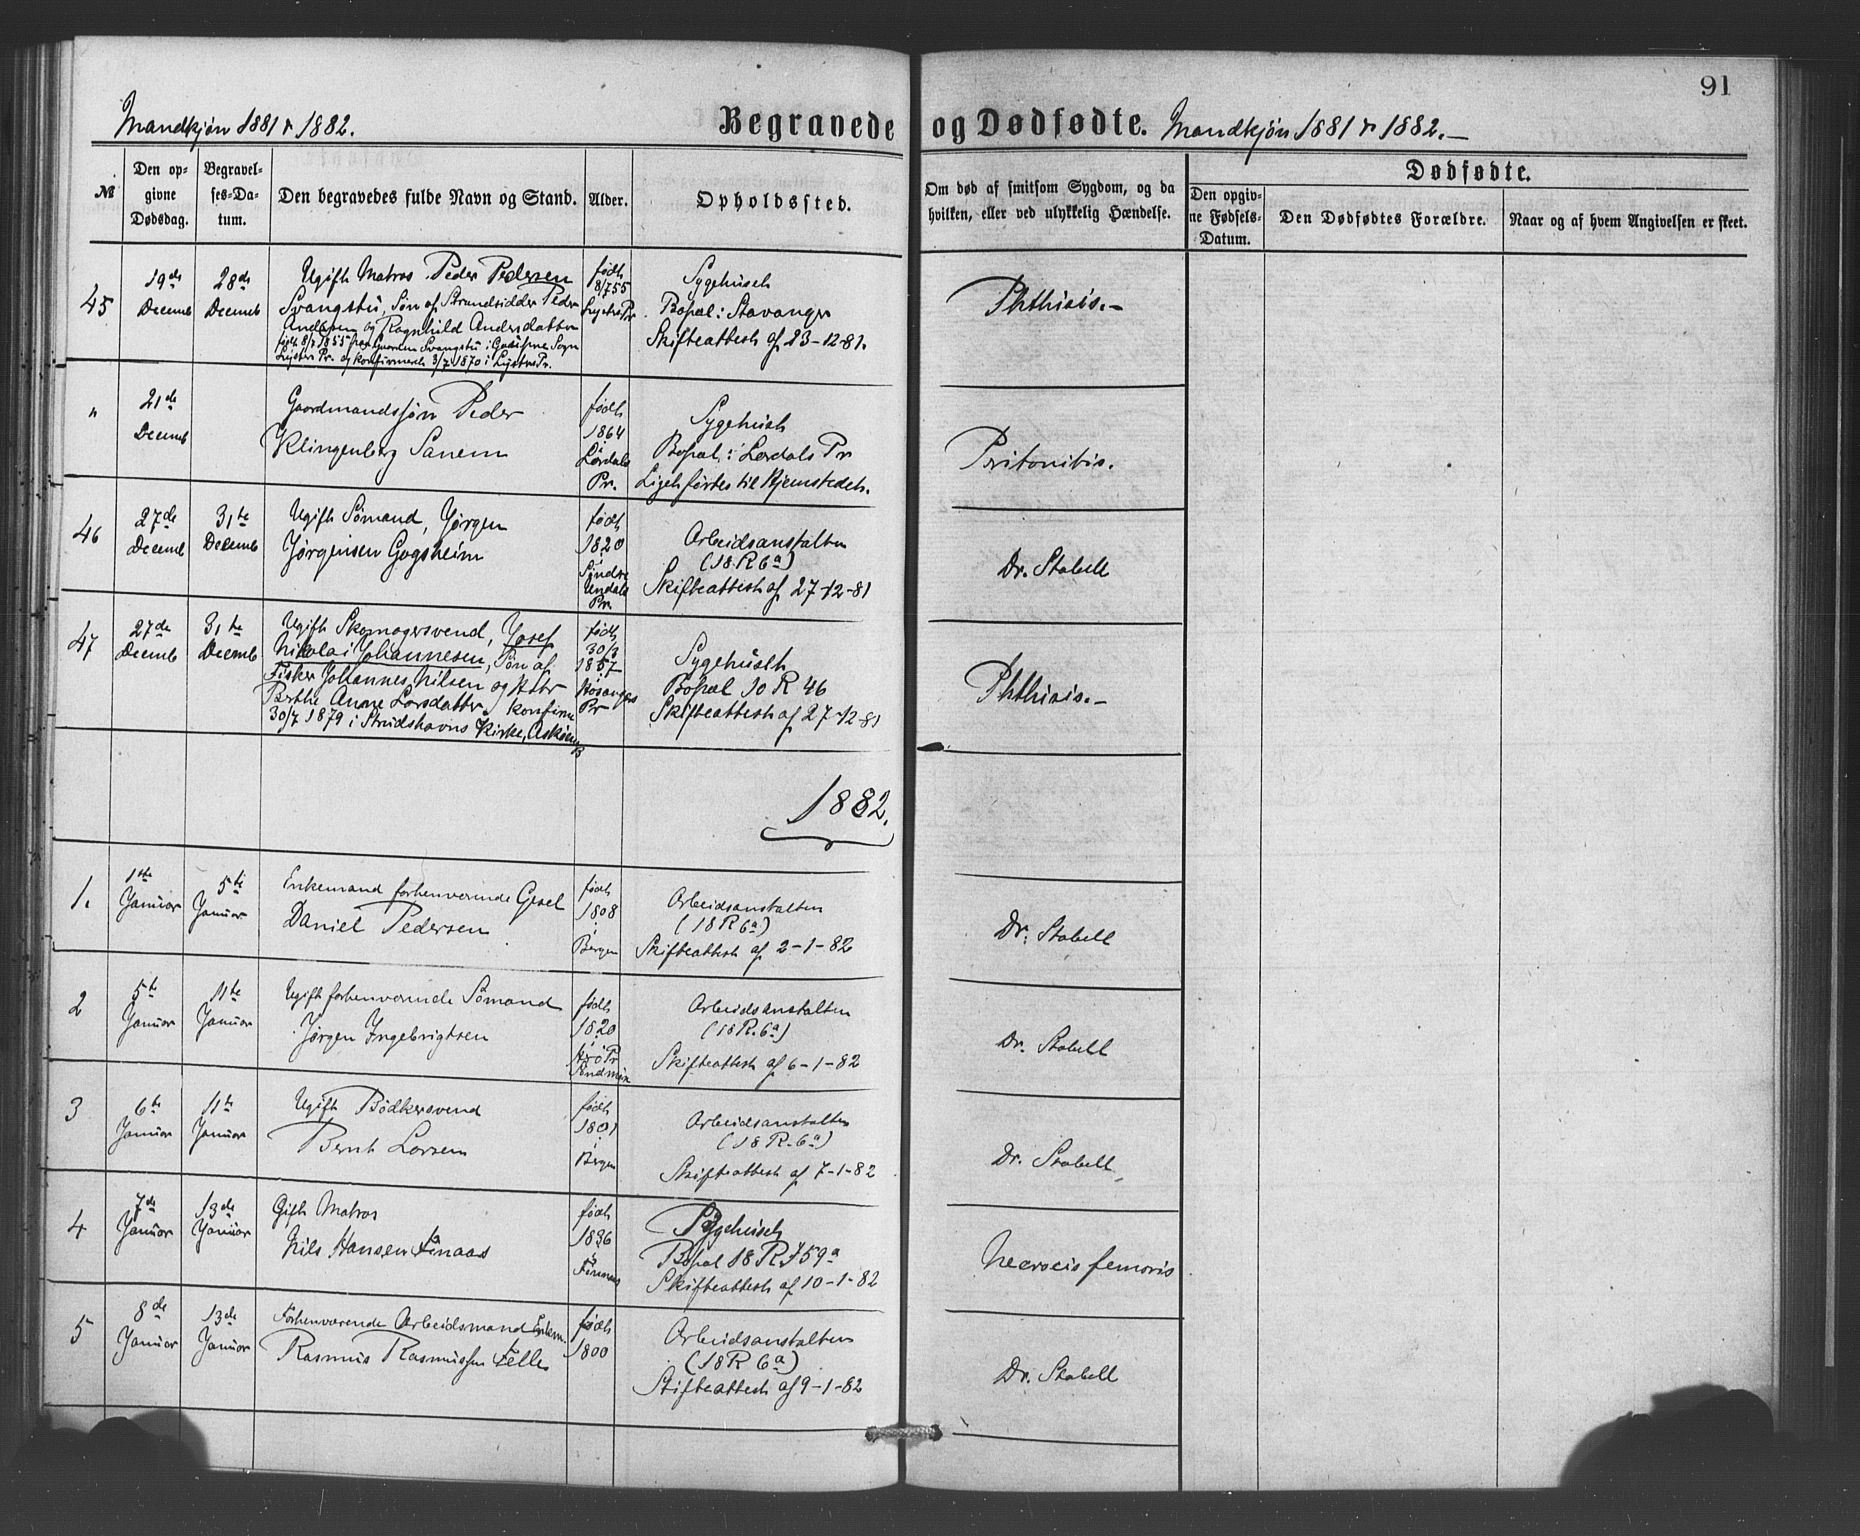 91
Mandkjøn 1881 & 1882.
Begravede og Dødfødte.
Mandkjøn 1881 & 1882.—
№
Den op-
givne
Dødsdag.
Begravel-
ses-Da-
tum.
Den begravedes fulde Navn og Stand.
Alder.
Opholdssted.
Om død af smitsom Sygdom, og da
hvilken, eller ved ulykkelig Hændelse.
Dødfødte.
Den opgiv-
ne Fødsels-
Datum.
Den Dødfødtes Forældre.
Naar og af hvem Angivelsen er skeet.
45
19de
Decemb
28de
Decemb
Ugift Matros Peder Pedersen
Svangstu, Søn af Strandsidder Peder
Andersen og Ragnhild Andersdatter
født 8/7 1855 paa Svangstu i Sogn
Lysters Pr. og konfirmeret 3/7 1870 i Lysters Pr.
født
8/7 55
Lysters Pr.
Sygehuset
Bopæl: Stavanger
Skifteattest af 23-12-81.
Phthisis.—
"
21de
Decemb
Gaardmandssøn Peder
Klingenberg Sanem
født
1864
i
Lærdals
Pr.
Sygehuset
Bopæl: Lærdals Pr
Liget førtes til Hjemstedet.
Pritonitis.
46
27de
Decemb
31te
Decemb
Ugift Sømand, Jørgen
Jørgensen Gogsheim
født
1820
i
Søndre
Undals
Pr.
Arbeidsanstalten
(18 R 6a)
Skifteattest af 27-12-81
Dr. Stabell
47
27de
Decemb
31te
Decemb
Ugift Skomagersvend, Josef
Nikolai Johannesen, Søn af
Fisker Johannes Nilsen og Hstr
Brithe Anne Larsdatter, konfirm
30/7 1879 i Strudshavns Kirke, Askøen
født
30/3
1857
i
Høsanger
Pr
Sygehuset
Bopæl 10 R 46
Skifteattest af 27-12-81
Phthisis.—
1882.
1.
1ste
Januar
5te
Januar
Enkemand forhenværende Gesel
Daniel Pedersen
født
1808
i
Bergen
Arbeidsanstalten
(18 R 6a)
Skifteattest af 2-1-82
Dr. Stabell
2
5te
Januar
11te
Januar
Ugift forhenværende Sømand
Jørgen Ingebrigtsen
født
1820
i
Herø Pr
Søndmør
Arbeidsanstalten
(18 R. 6a)
Skifteattest af 6-1-82
Dr. Stabell
3
6te
Januar
11te
Januar
Ugift Bødkersvend
Bernt Larsen
født
1801
i
Bergen
Arbeidsanstalten
(18 R. 6a)
Skifteattest af 7-1-82
Dr. Stabell
4
7de
Januar
13de
Januar
Gift Matros
Nils Hansen Finaas
født
1836
i
Finnaas
Sygehuset
Bopæl 18 R 759a
Skifteattest af 10-1-82
Necrocis femoris
5
8de
Januar
13de
Januar
Forhenværende Arbeidsmand Enkem.
Rasmus Rasmussen Felle
født
1800
Arbeidsanstalten
(18 R 6a)
Skifteattest af 9-1-82
Dr. Stabell